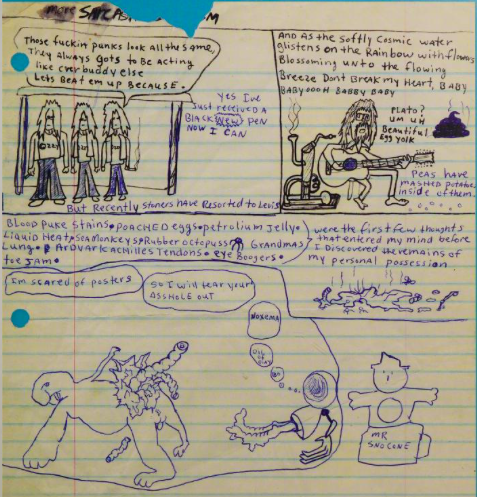 more
Those fuckin punks look all the same,
They always gots to Be acting
like everbuddy else
Lets Beat em up BECAUSE.
YES I've
Just received a
BLACK NEW PEN
NOW I CAN
But Recently stoners have Resorted to Levis
And As the softly Cosmic water
glistens on the Rainbow with flowers
Blossoming unto the flowing
Breeze Dont Break my Heart, BABY
BABY OOOH BABBY BABY
PLATO?
UM UH
Beautiful
Egg YOLK
PEAS HAVE
MASHED POTATOE
inside of them.
Blood puke stains • POACHED eggs • petroliumJelly •
Liquid Heat • SeaMonkeys • Rubber octopuss
Grandmas
Lung • ArdvarkAchilles Tendons • eye Boogers •
toe JAM •
were the first few thoughts
that entered my mind before
I Discovered the remains of
my personal possession
I'm scared of posters
So I will tear your
ASSHOLE OUT
NOXEMA
MR
SNOCONE